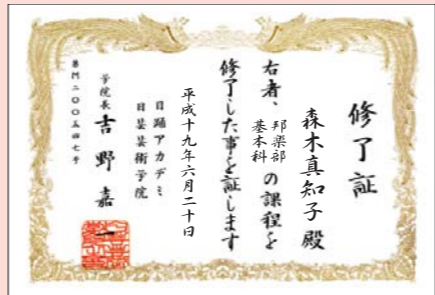 修了証
森木真知子殿
右者、邦楽部
基本科
の課程を
修了した事を証します
平成十九年六月二十日
日踊アカデミ
日芸芸術学院
学院長 吉野嘉一